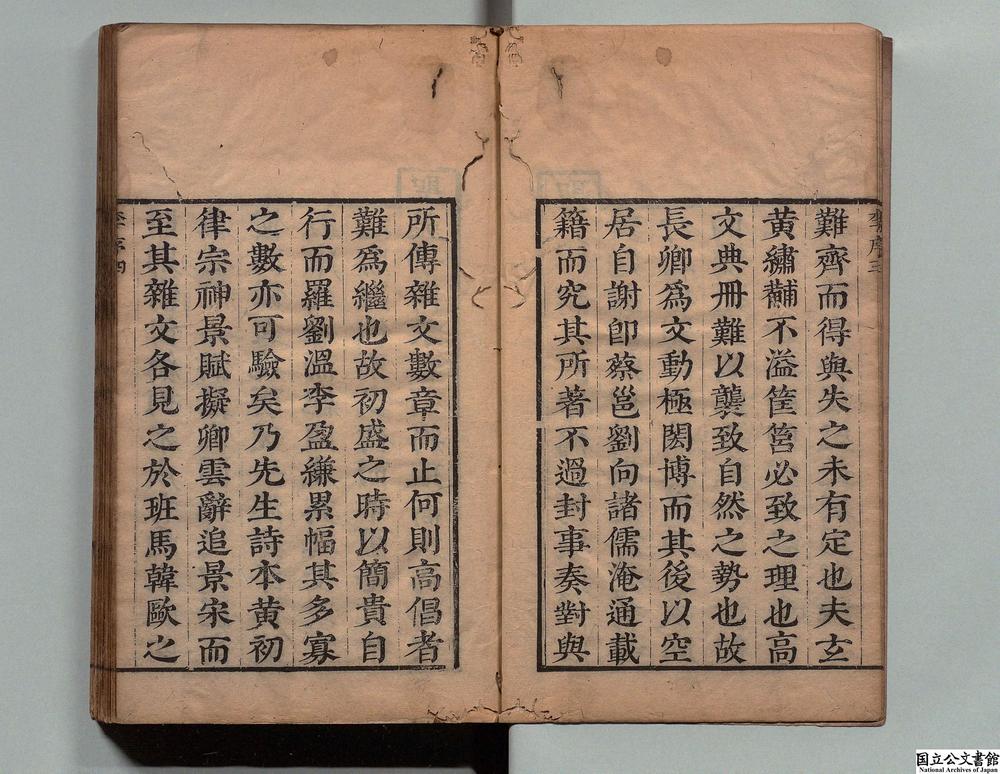 難齊而得與失之未有定也夫玄
黄繡黼不溢筐筥必致之理也高
文典冊難以襲致自然之勢也故
長卿爲文動極閎博而其後以空
居自謝卽蔡邕劉向諸儒淹通載
籍而究其所著不過封事奏對與
所傳雜文數章而止何則高倡者
難爲繼也故初盛之時以簡貴自
行而羅劉溫李盈縑累幅其多寡
之數亦可驗矣乃先生詩本黄初
律宗神景賦擬卿雲辭追景宋而
至其雜文各見之於班馬韓歐之
国立公文書館
National Archives of Japan